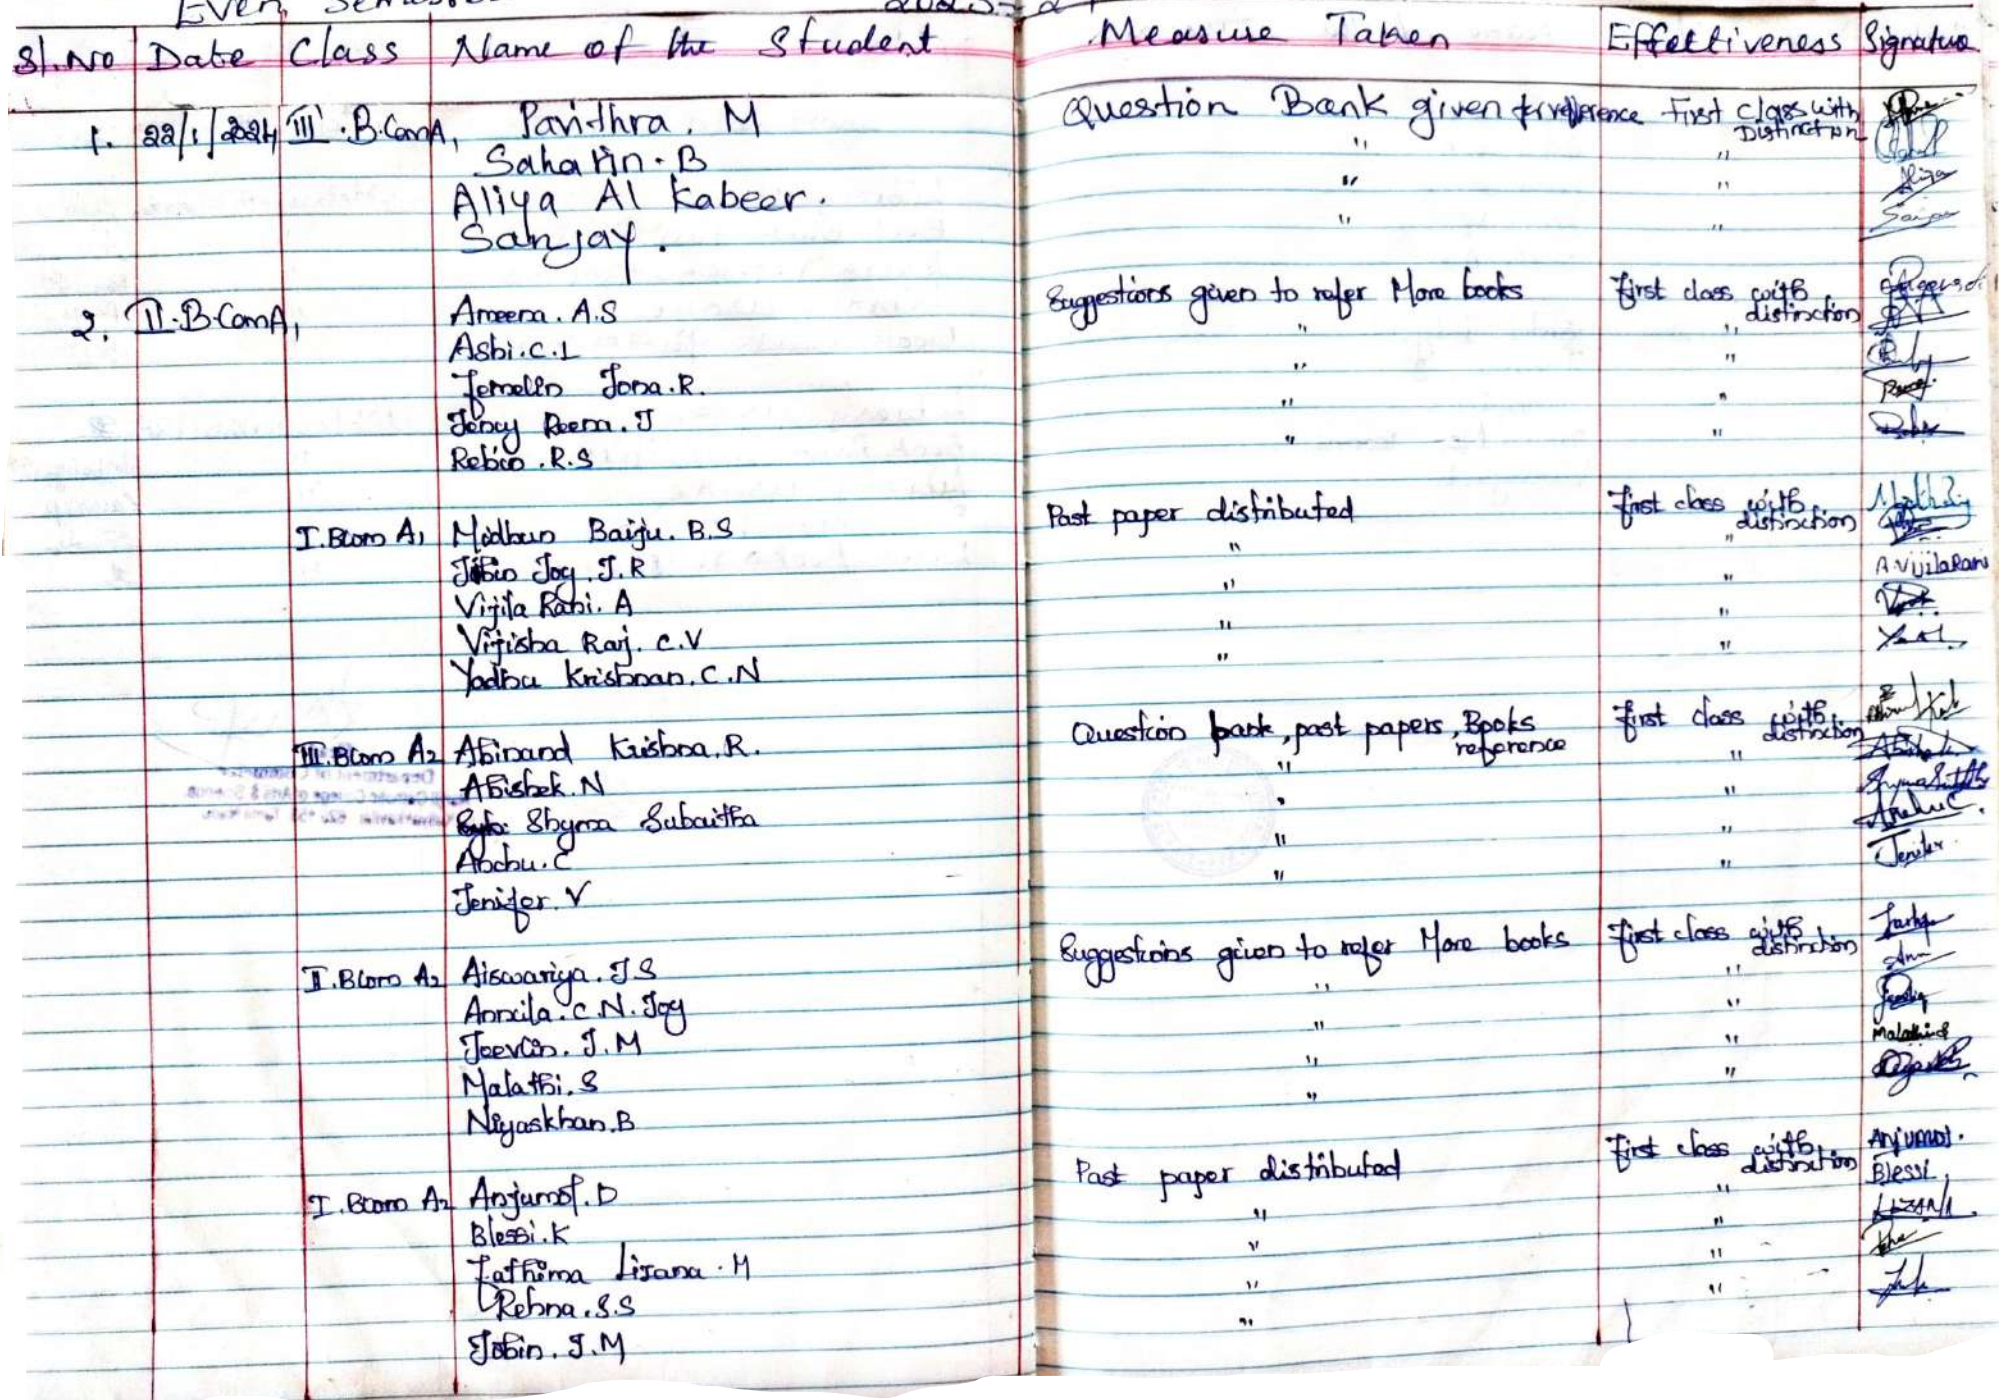 Even Semester 2023-24
Sl.No Date Class Name of the Student Measure Taken Effectiveness Signature
1. 22/1/2024 III B.Com A1 Pavithra. M Question Bank given for reference First Class with Distinction
Saharin. B " "
Aliya Al Kabeer. " " Aliya
Sanjay. " " Sanjay
2. II. B.Com A1 Ameera. A.S Suggestions given to refer More books First class with distinction
Asbi. C. L " "
Jemelin Jona. R. " "
Jency Reena. J " "
Rebin. R.S " "
I. Bcom A1 Midhun Baiju. B.S Past paper distributed First class with distinction
Jibin Joy. J.R " "
Vijila Rani. A " " A.VijilaRani
Vijisha Raj. C.V " "
Yadhu Krishnan. C.N " "
III. Bcom A2 Abinand Krishna. R. Question bank, past papers, Books reference First class with distinction
Abishek. N " "
Shyma Subaitha " "
Anchu. C " "
Jenifer. V " " Jenifer
II. Bcom A2 Aiswariya. J S Suggestions given to refer More books First class with distinction
Anncila. C. N. Joy " " Ann
Joevlin. J. M " "
Malathi. S " " Malathi S
Niyaskhan. B " "
I. Bcom A2 Anjumol. D Past paper distributed First class with distinction Anjumol.
Blessi. K " " Blessi.
Fathima Lisana. M " "
Rehna. S.S " "
Jobin. J. M " "